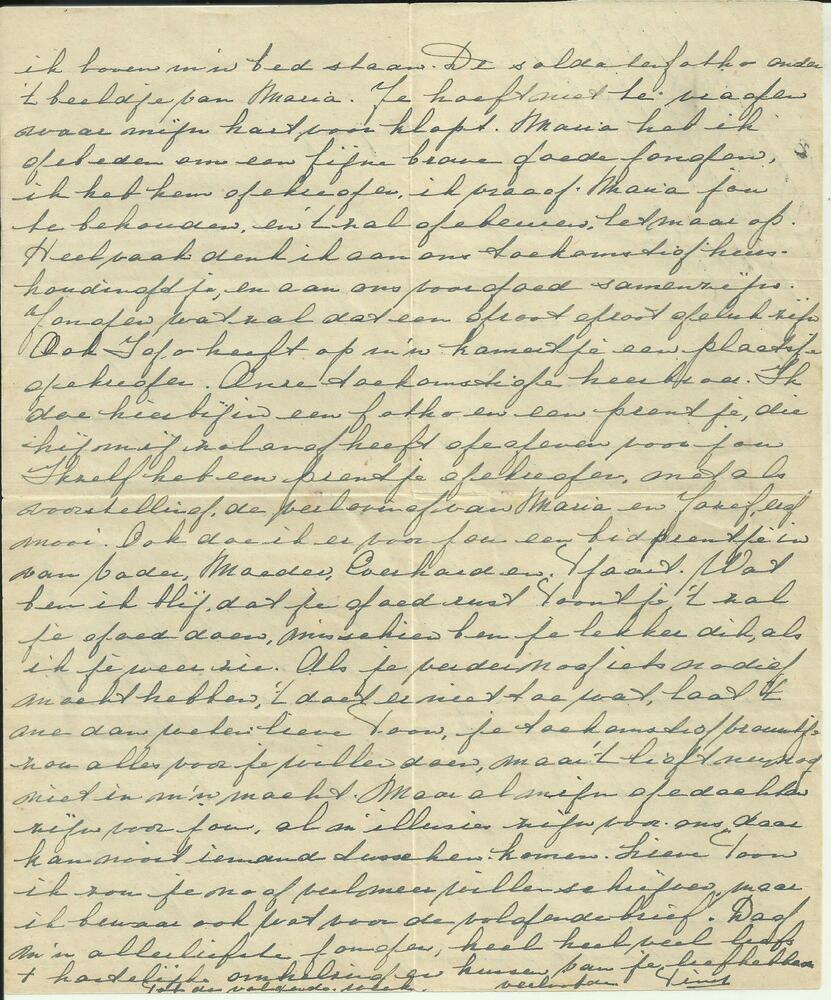 ik boven m'n bed staan. De soldatenfotho onder
't beeldje van Maria. Je hoeft niet te vragen
waar mijn hart voor klopt. Maria heb ik
gebeden om een fijne brave goede jongen,
ik heb hem gekregen, ik vraag Maria jou
te behouden, en 't zal gebeuren, let maar op.
Heel vaak denk ik aan ons toekomstig huis-
houdingetje, en aan ons voorgoed samenzijn.
Jongen wat zal dat een groot groot geluk zijn
Ook heeft op m'n kamertje een plaatsje
gekregen. Onze toekomstige heerbroer. Ik
doe hierbij in een fotho en een prentje, die
hij mij zolang heeft gegeven voor jou
Ikzelf heb een prentje gekregen, met als
voorstelling, de verloving van Maria en Jozef, erg
mooi. Ook doe ik er voor jou een bidprentje in
van Vader, Moeder, Everhard en. Wat
ben ik blij, dat je goed rust Toontje, 't zal
je goed doen, misschien ben je lekker dik, als
ik je weer zie. Als je verder nog iets nodig
mocht hebben, 't doet er niet toe wat, laat 't
me dan weten lieve Toon, je toekomstig vrouwtje
zou alles voor je willen doen, maar 't ligt nu nog
niet in m'n macht. Maar al mijn gedachten
zijn voor jou, al m'n illusies zijn voor ons, daar
kan nooit iemand tusschen komen. Lieve Toon
ik zou je nog veel meer willen schrijven, maar
ik bewaar ook wat voor de volgende brief. Dag
m'n allerliefste jongen, heel heel veel liefs
+ hartelijke omhelzing en kussen van je liefhebbende
Tot de volgende week. verloofde Tiny